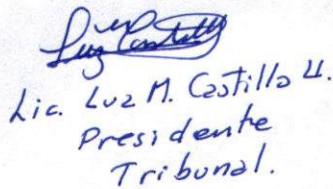 Luz Castillo
Lic. Luz M. Castillo U.
Presidente
Tribunal.